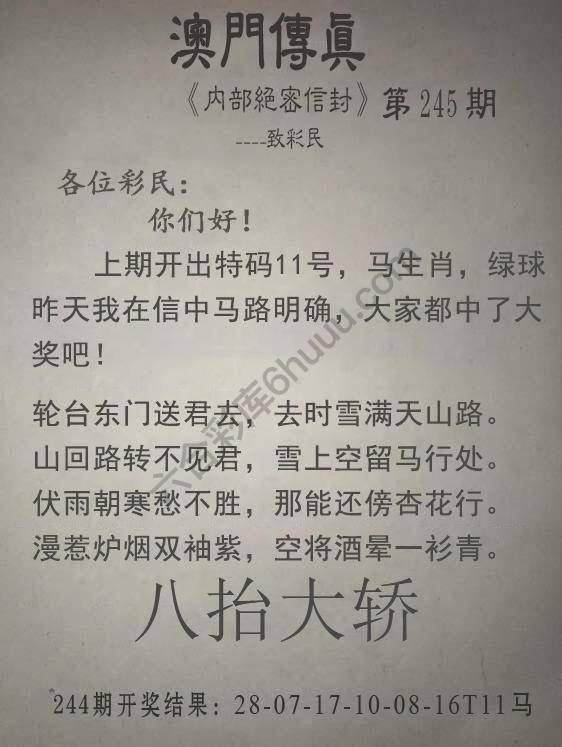 澳門傳眞
《内部絕密信封》第245期
----致彩民
各位彩民：
你们好！
上期开出特码11号，马生肖，绿球
昨天我在信中马路明确，大家都中了大
奖吧！
轮台东门送君去，去时雪满天山路。
山回路转不见君，雪上空留马行处。
伏雨朝寒愁不胜，那能还傍杏花行。
漫惹炉烟双袖紫，空将酒晕一衫青。
八抬大轿
244期开奖结果：28-07-17-10-08-16T11马
六合彩库6huuu.com